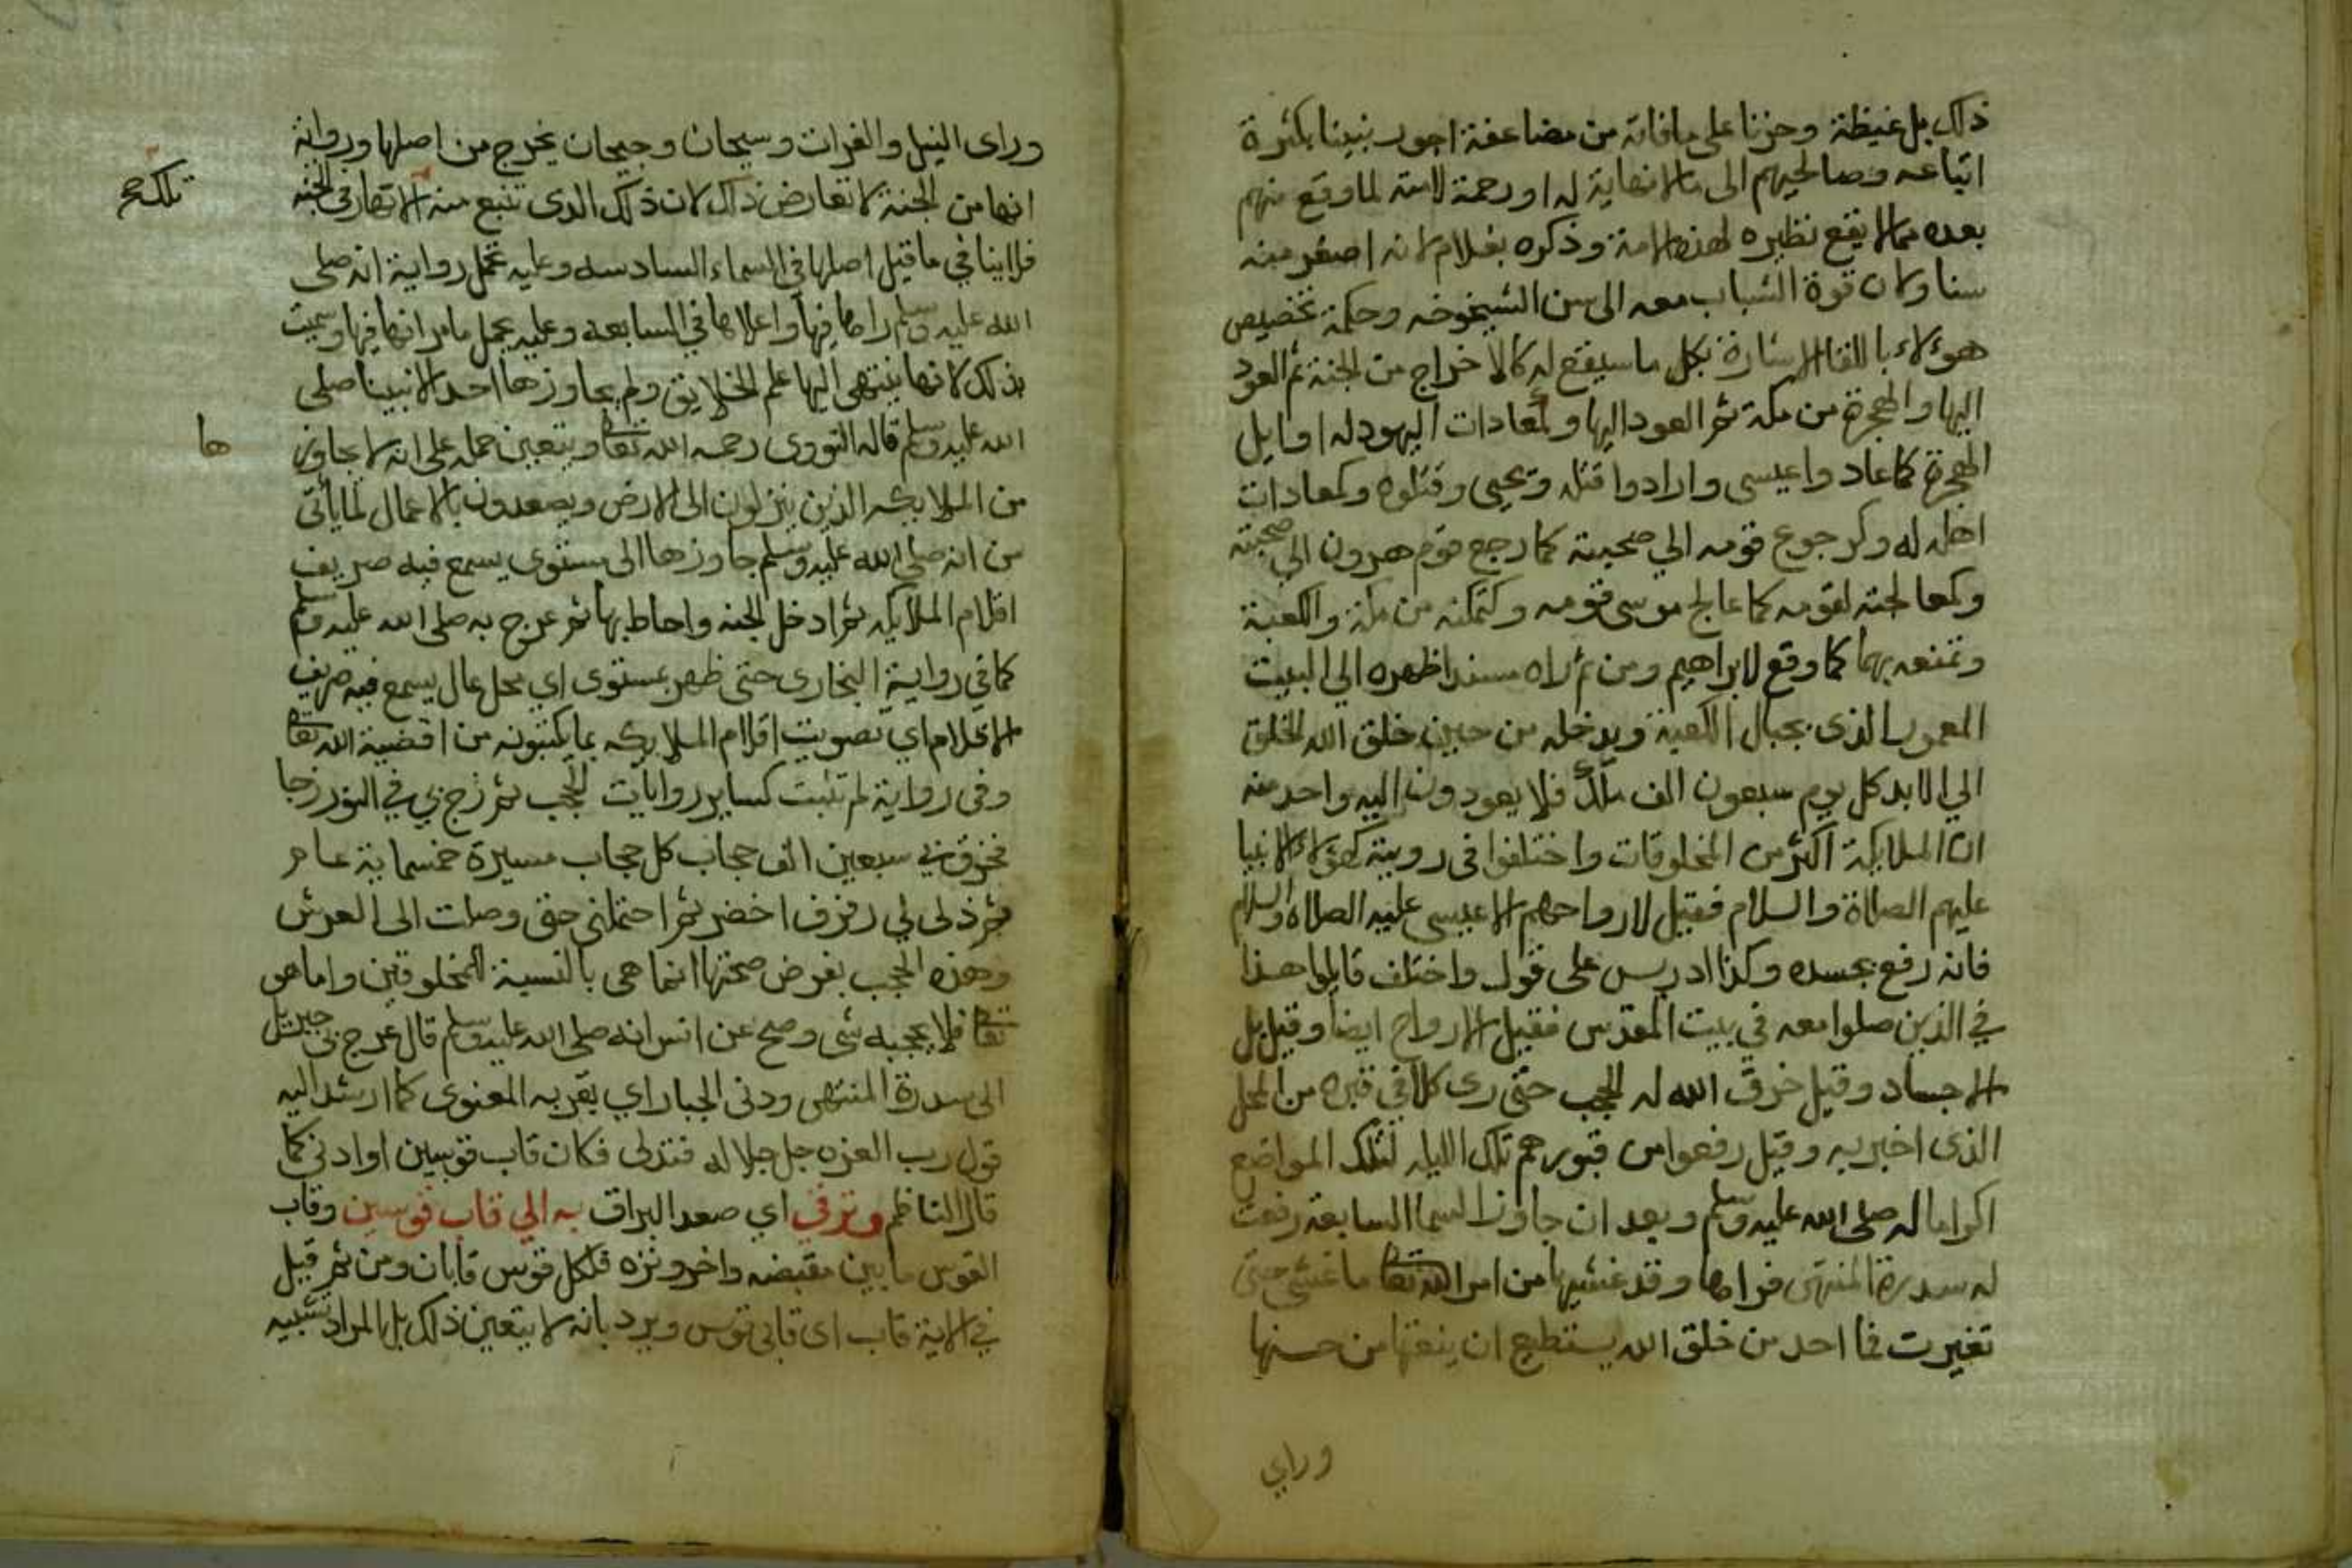 ذلك بل غبطة وحزنا على ما فاته من مضاعفة اجور نبينا بكثرة
اتباعه وصالحيهم الى ما لا نهاية له او رحمة لامته لما وقع منهم
بعده مما لا يقع نظيره لهذه الامة وذكره بغلام لانه اصغر منه
سنا ولان قوة الشباب معه الى سن الشيخوخه وحكمة تخصيص
هؤلاء باللقا الاشارة بكل ما سيقع له كالاخراج من الجنة ثم العود
اليها والهجرة من مكة ثم العود اليها ولمعادات اليهود له اوايل
الهجرة كما عادوا عيسى وارادوا قتله ويحيى وقتلوه وكمعادات
اهله له وكرجوع قومه الي محبته كما رجع قوم هرون الي محبته
وكمعالجته لقومه كما عالج موسى قومه وكتمكنه من مكة والكعبة
وتمنعه بهما كما وقع لابراهيم ومن ثم راه مسندا ظهره الي البيت
المعمور الذى بحيال الكعبة ويدخله من حين خلق الله الخلق
الي الابد كل يوم سبعون الف ملك فلا يعودون اليه واحد منه
ان الملايكة اكثر من المخلوقات واختلفوا فى روية هؤلاء الانبيا
عليهم الصلاة والسلام فقيل لارواحهم الا عيسى عليه الصلاة والسلام
فانه رفع بجسده وكذا ادريس على قول واختلف قايلوا هذا
في الذين صلوا معه في بيت المقدس فقيل الارواح ايضا وقيل بل
الاجساد وقيل خرق الله له الحجب حتى رى كلا في قبره من المحل
الذى اخبر به وقيل رفعوا من قبورهم تلك الليله لتلك المواضع
اكراما له صلى الله عليه وسلم وبعد ان جاوز السما السابعة رفعت
له سدرة المنتهى فراها وقد غشيها من امر الله تعا ما غشي حتى
تغيرت فما احد من خلق الله يستطيع ان ينعتها من حسنها
وراي
وراى النيل والفرات وسيحان وجيحان يخرج من اصلها ورواية
انها من الجنة لا تعارض ذلك لان ذلك الذى تنبع منه الانهار فى الجنه
تلك صح
فلا ينافي ما قيل اصلها في السماء السادسه وعليه تحمل رواية انه صلى
الله عليه وسلم راها فيها واعلاها في السابعه وعليه يحمل ما مر انها فيها وسميت
بذلك لانها ينتهى اليها علم الخلايق ولم يجاوزها احد الا نبينا صلى
الله عليه وسلم قاله النووى رحمه الله تعا ويتعين حمله على انه لا يجاوز
ها
من الملايكه الذين ينزلون الى الارض ويصعدون بالاعمال لما يأتى
من انه صلى الله عليه وسلم جاوزها الى مستوى يسمع فيه صريف
اقلام الملايكه ثم ادخل الجنه واحاط بها ثم عرج به صلى الله عليه وسلم
كما في رواية البخارى حتى ظهر بمستوى اي محل عال يسمع فيه صريف
الاقلام اي تصويت اقلام الملايكه بما يكتبونه من اقضية الله تعا
وفى رواية لم تثبت كساير روايات الحجب ثم زج بي في النور زجا
فخرق بي سبعين الف حجاب كل حجاب مسيرة خمسماية عام
ثم دلى لي رفرف اخضر ثم احتملنى حتى وصلت الى العرش
وهذه الحجب بفرض صحتها انما هى بالنسبة للمخلوقين واما هو
تعا فلا يحجبه شى وصح عن انس انه صلى الله عليه وسلم قال عرج بى جبريل
الى سدرة المنتهى ودنى الجبار اي بقربه المعنوى كما ارشد اليه
قول رب العزه جل جلاله فتدلى فكان قاب قوسين او ادنى كما
قال الناظم وترقي اي صعد البراق به الي قاب قوسين وقاب
القوس ما بين مقبضه واخر وتره فلكل قوس قابان ومن ثم قيل
في الاية قاب اى قابى قوس ويرد بانه لا يتعين ذلك بل المراد تشبيه